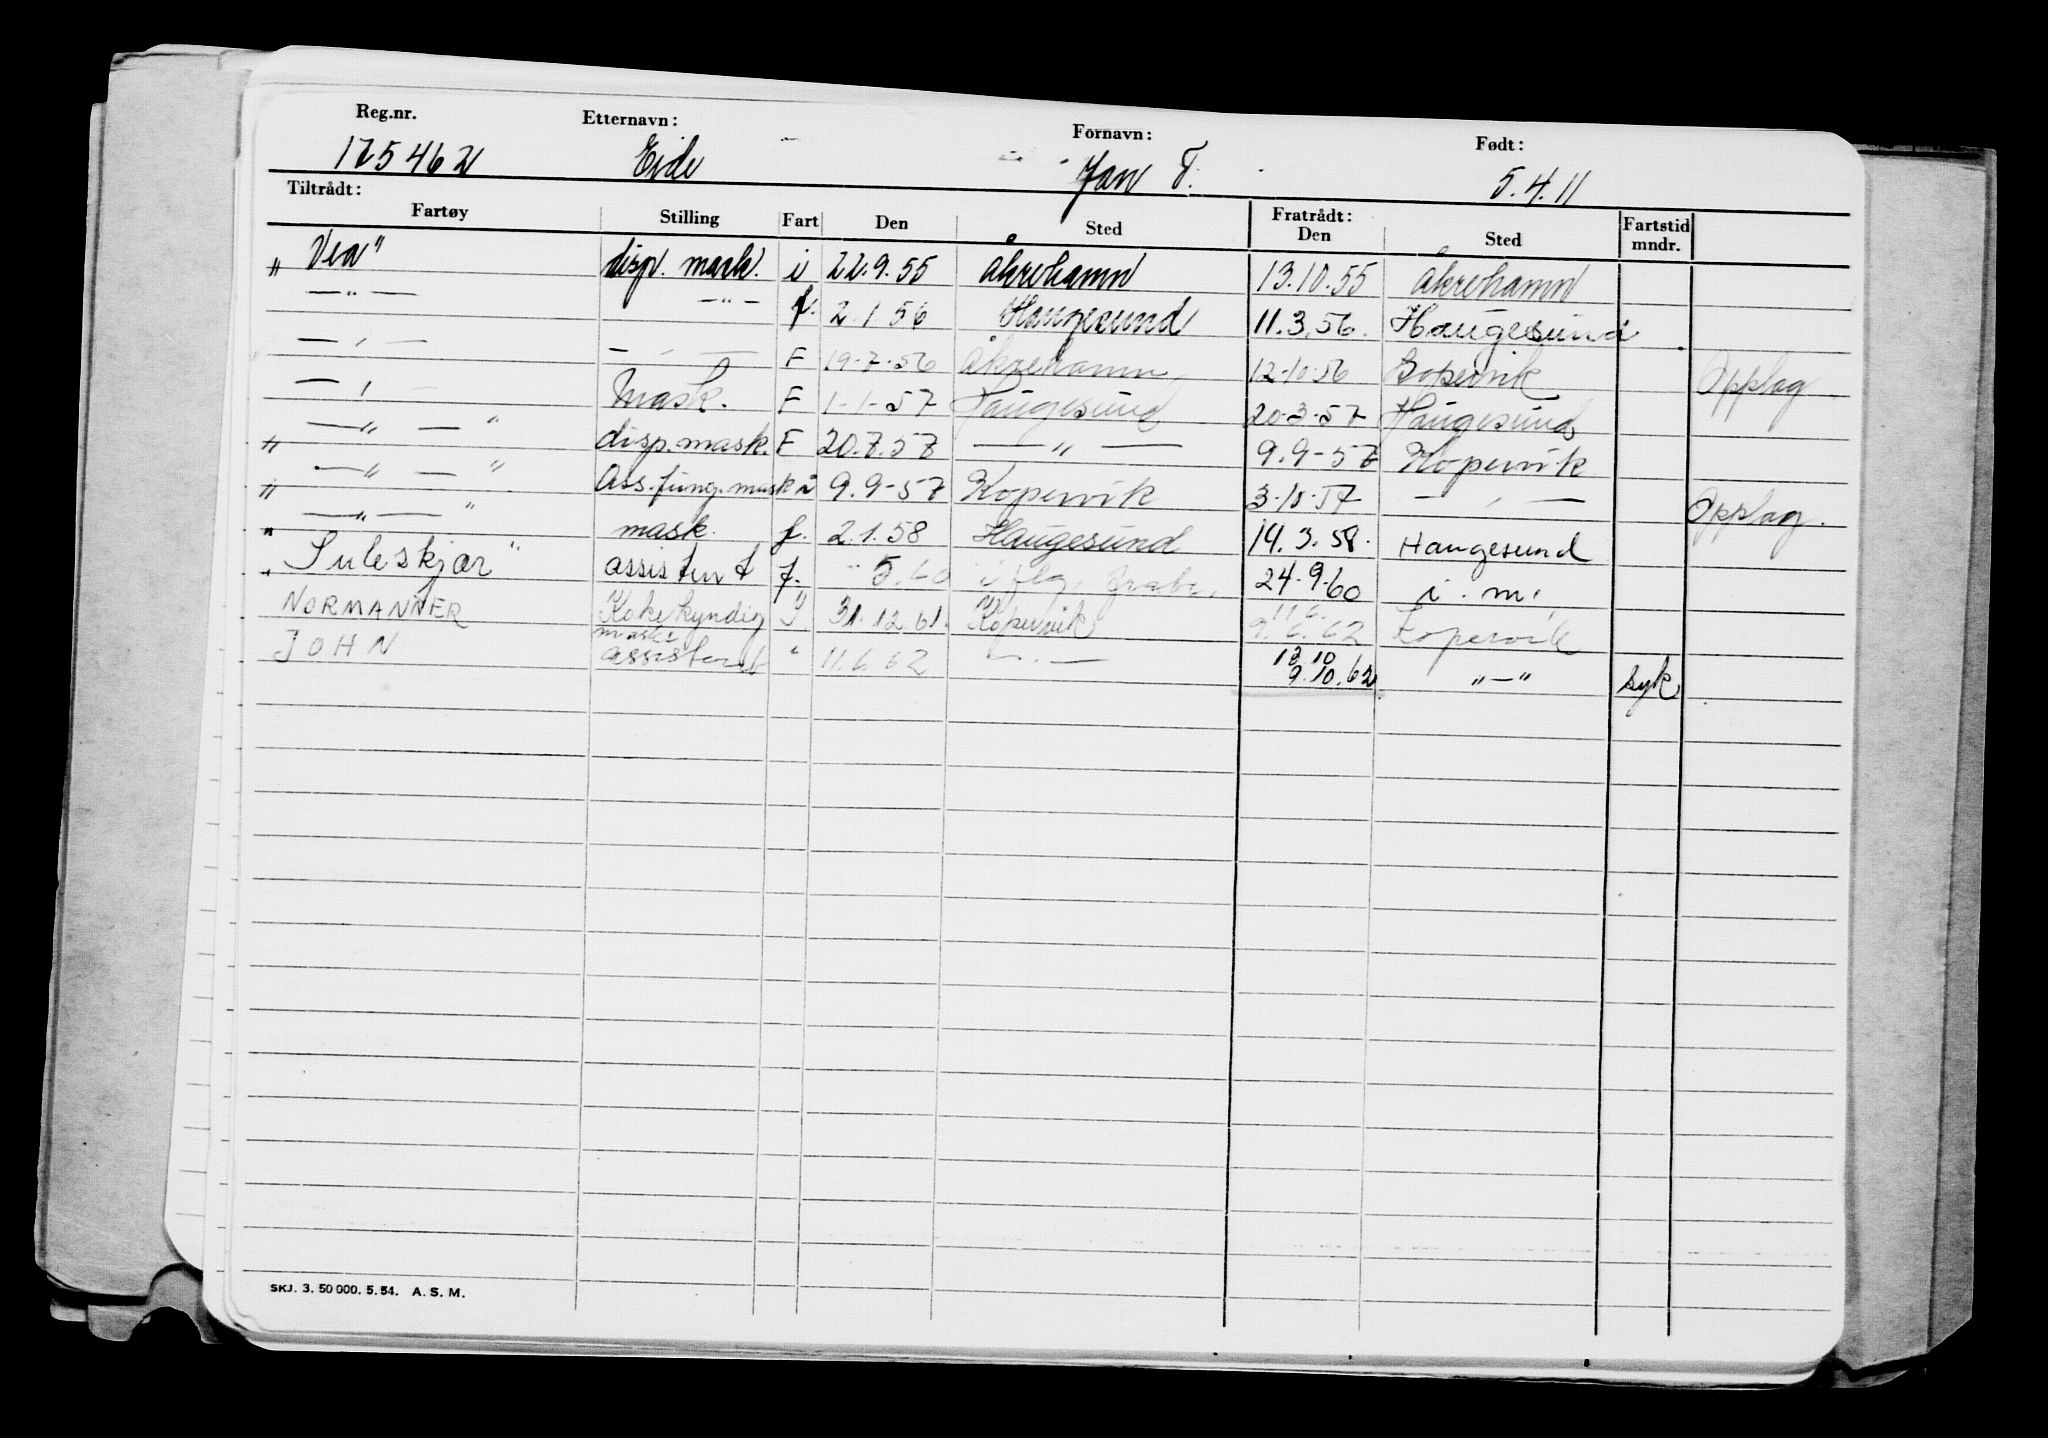 Reg.nr. Etternavn: Fornavn: Født:
125462 Eide Jan T. 5.4.11
Tiltrådt: Fratrådt:
Fartøy Stilling Fart Den Sted Den Sted Fartstid mndr.
"Vea" disp. mask. i 22.9.55 Åkrehamn 13.10.55 Åkrehamn
—"— —"— f. 2.1.56 Haugesund 11.3.56. Haugesund
—,— —,— F 19-7-56 Åkrehamn 12-10-56 Kopervik Opplag
—,— Mask. F 1-1-57 Haugesund 20-3-57 Haugesund
" —"— " disp. mask. F 20.7.57 —"— 9.9-57 Kopervik
" —"— " Ass. fung. mask i 9.9-57 Kopervik 3-10-57 —,— Opplag.
" —"— " mask. f. 2.1.58 Haugesund 14.3.58. Haugesund
"Suleskjær" assistent f. 5.60 24-9-60 i. m.
NORMANNER Kokekyndig I 31.12.61. Kopervik 11.6. 9.6.62 Kopervik
JOHN mask. assistent " 11.6.62 —.— 13.10 9.10.62 "—" syk
SKJ. 3. 50 000. 5. 54. A. S. M.